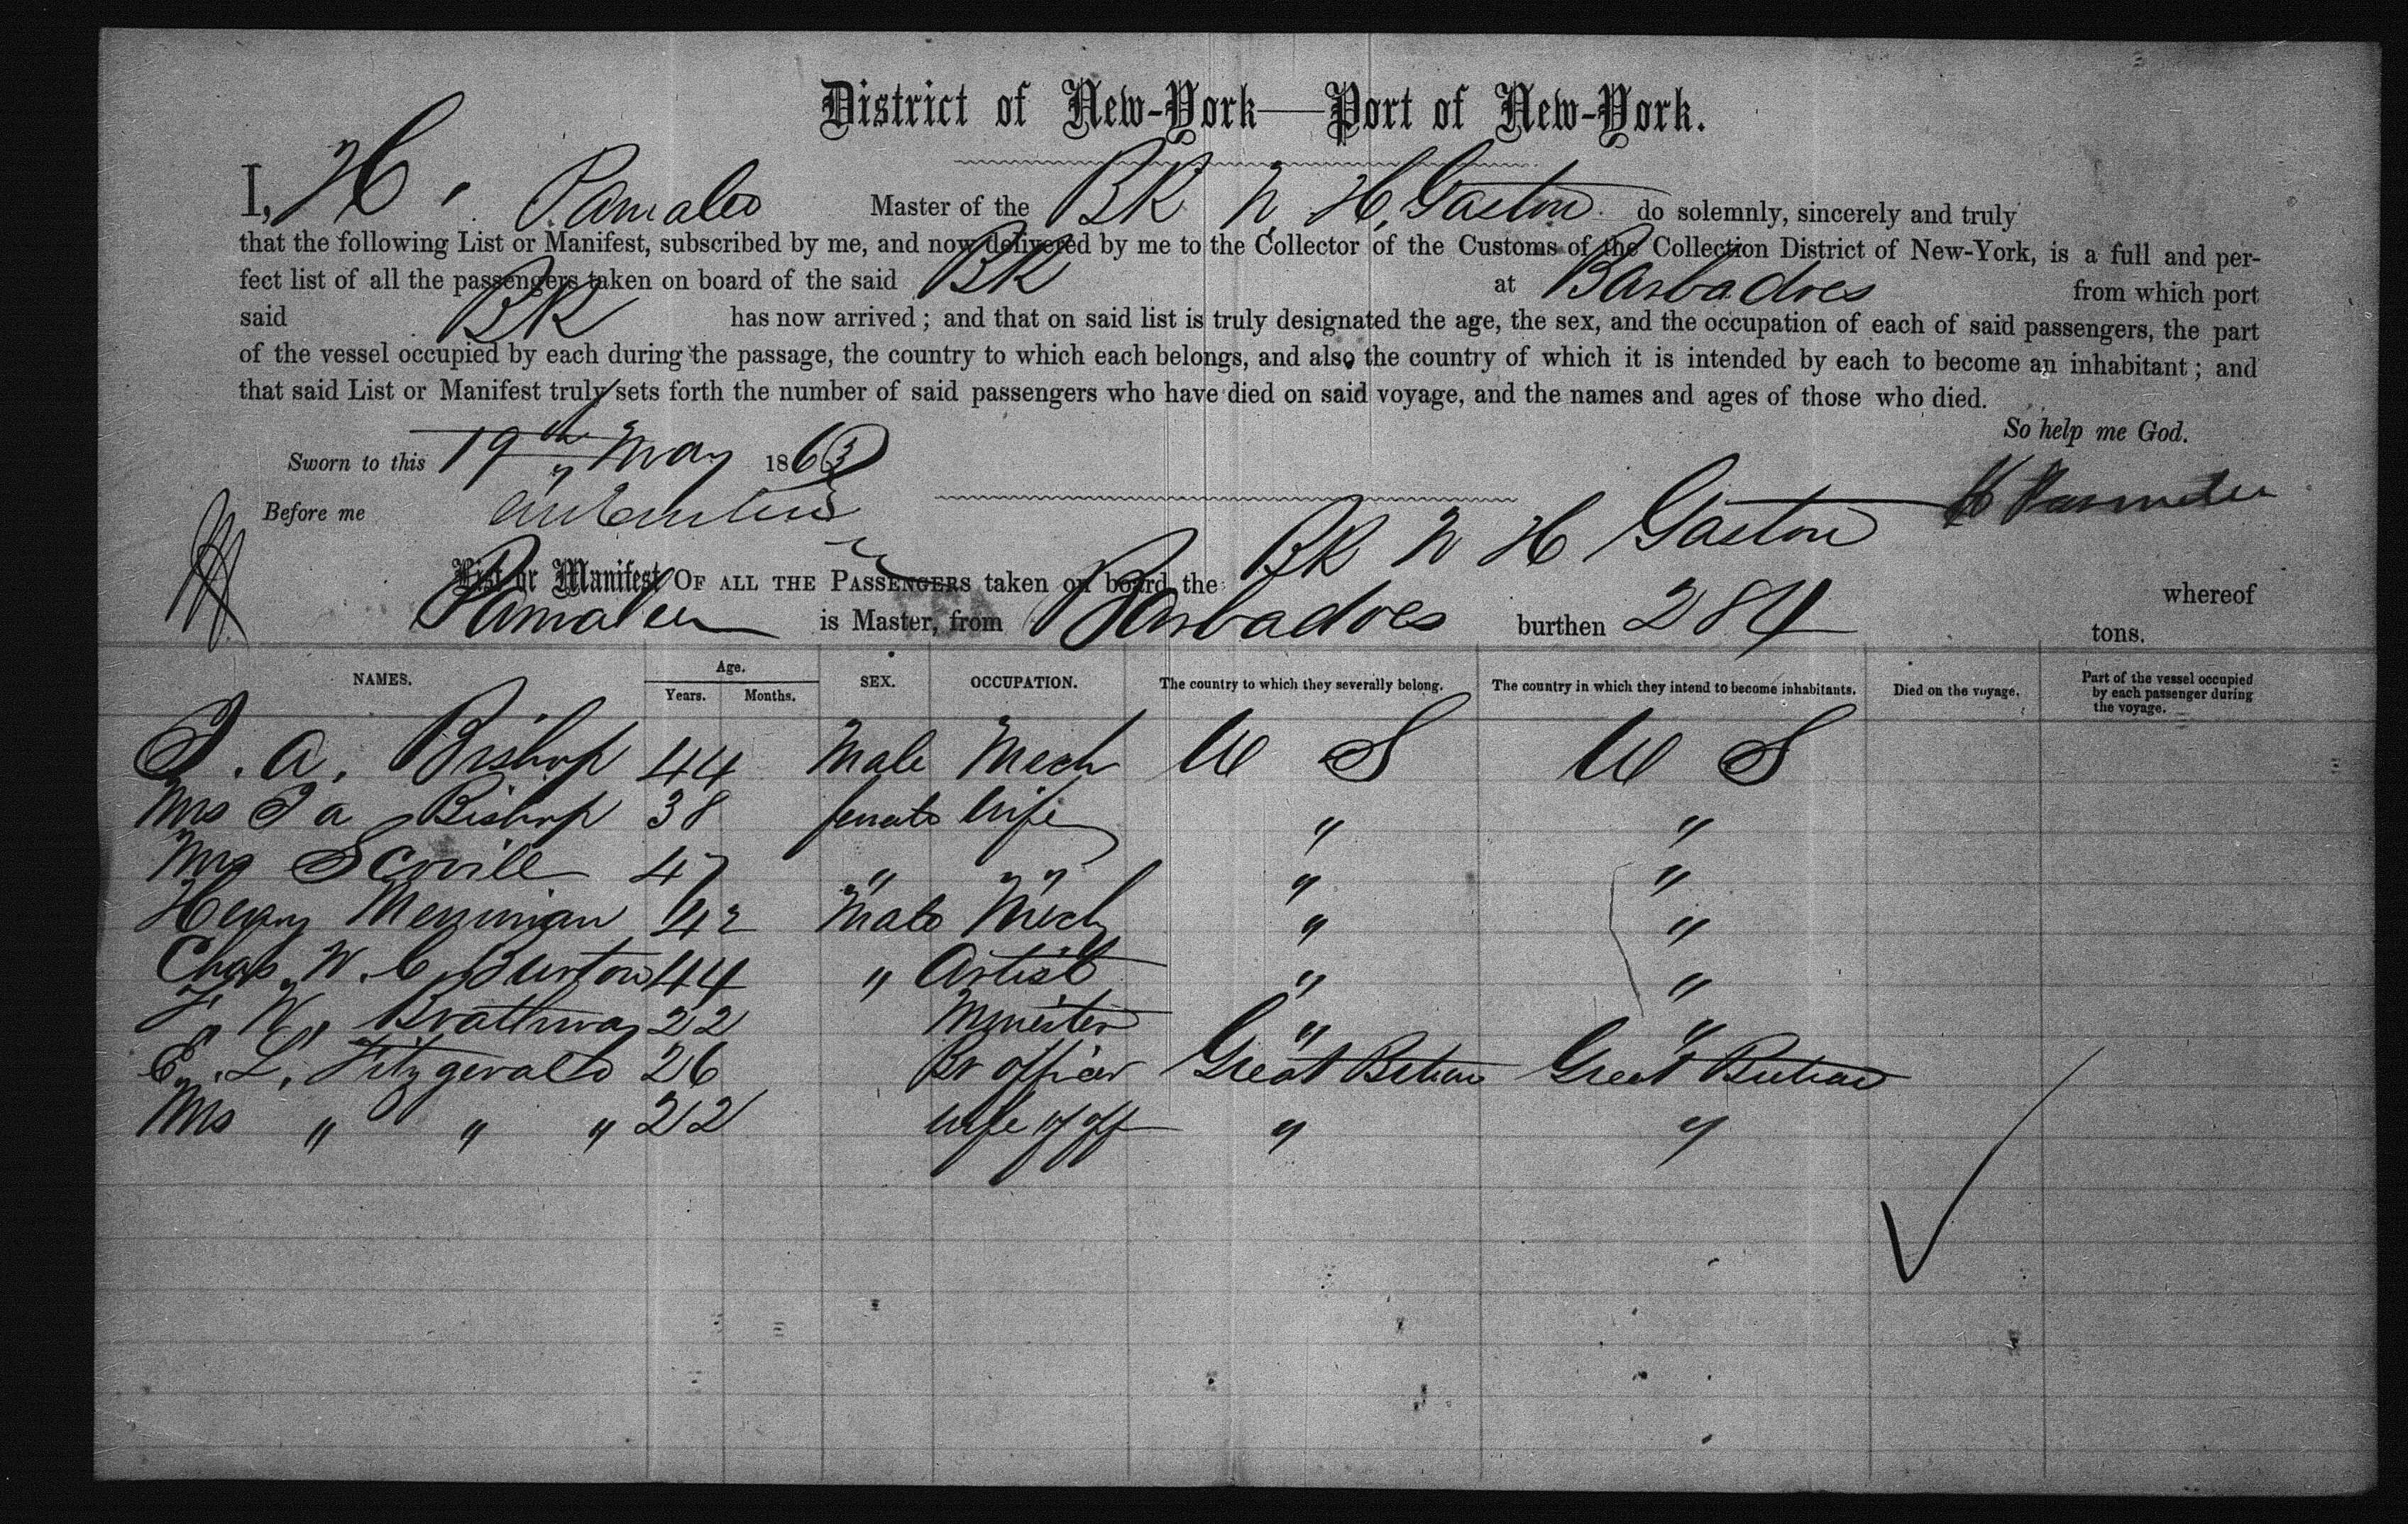 District of New-York—Port of New-York.
I, H. Master of the BK N H. Gaston do solemnly, sincerely and truly
that the following List or Manifest, subscribed by me, and now delivered by me to the Collector of the Customs of the Collection District of New-York, is a full and per-
fect list of all the passengers taken on board of the said BK at Barbadoes from which port
said BK has now arrived; and that on said list is truly designated the age, the sex, and the occupation of each of said passengers, the part
of the vessel occupied by each during the passage, the country to which each belongs, and also the country of which it is intended by each to become an inhabitant; and
that said List or Manifest truly sets forth the number of said passengers who have died on said voyage, and the names and ages of those who died.
So help me God.
Sworn to this 19th May 1863
Before me
H
List or Manifest OF ALL THE PASSENGERS taken on board the BK N H Gaston whereof
is Master, from Barbadoes burthen 284 tons.
NAMES. Age. Years. Months. SEX. OCCUPATION. The country to which they severally belong. The country in which they intend to become inhabitants. Died on the voyage. Part of the vessel occupied by each passenger during the voyage.
A. Bishop 44 Male Mech U S U S
Mrs a Bishop 38 female Wife " "
Mrs Scovill 47 " " " "
Henry Merriman 42 Male Mech " "
Chas. W. C. Burton 44 " Artist " "
W. 22 Minister " "
E. L. Fitzgerald 26 Br officer Great Britain Great Britain
Mrs " " " 22 wife of off " "